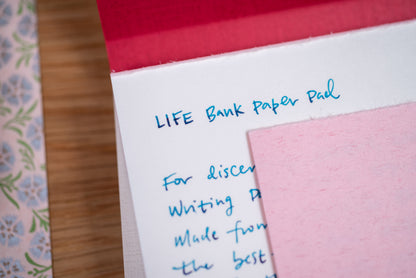 LIFE Bank Paper Pad
For discer
Writing P
Made from
the best